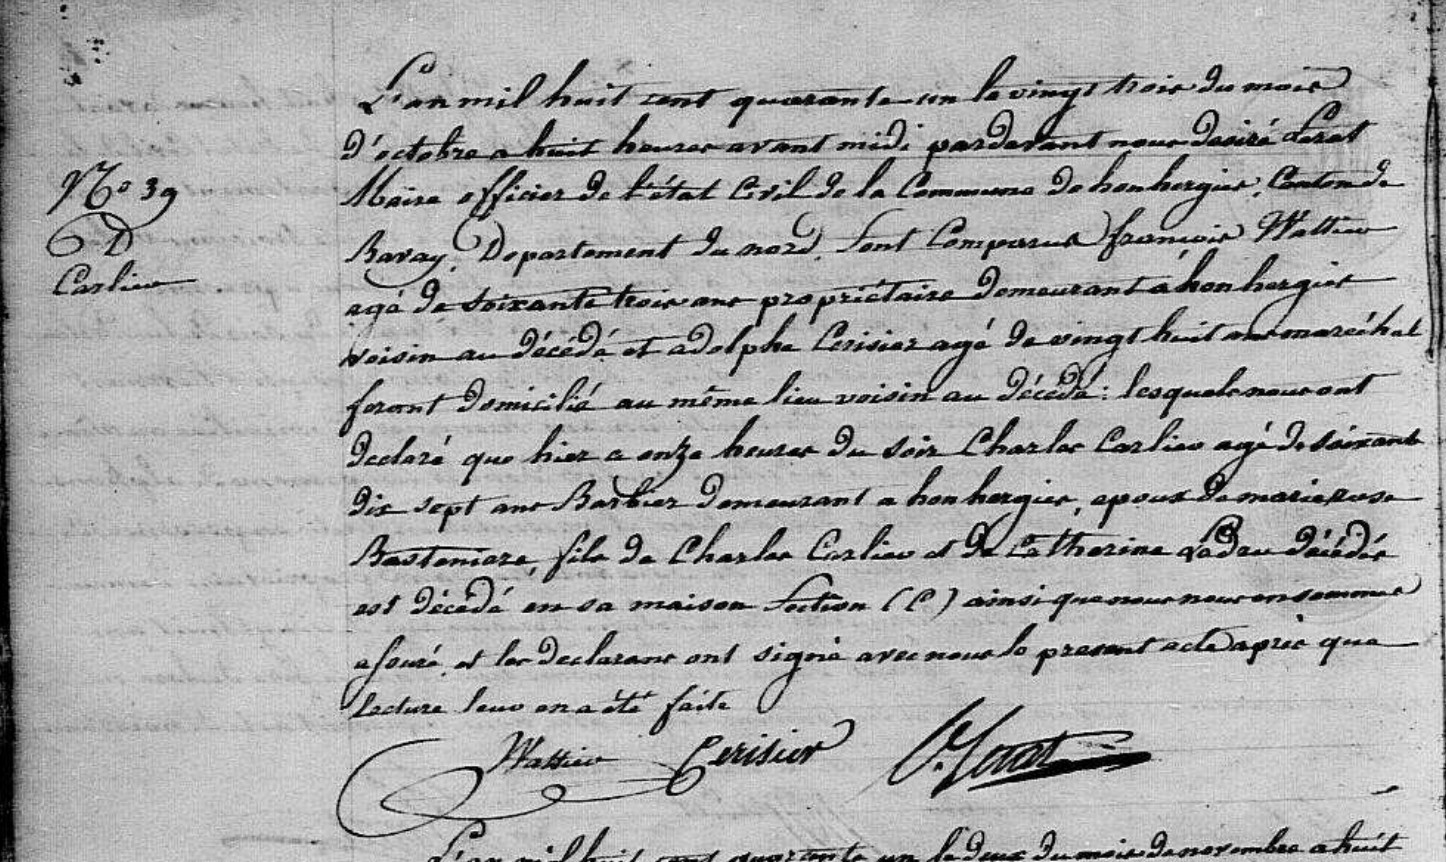 L'an mil huit cent quarante un le vingt trois du mois
d'octobre a huit heures avant midi pardevant nous desiré Lerat
Maire officier de l'état Civil de la Commune de honhergies, Canton de
Bavay, Departement du nord, Sont Comparus francois Wattiau
agé de soixante trois ans propriétaire demeurant à honhergies
voisin au décédé et adolphe Cerisier agé de vingt huit ans maréchal
ferant domicilié au même lieu voisin au décédé: lesquels nous ont
declaré que hier a onze heures du soir Charles Carlier agé de soixante
dix sept ans Barbier demeurant a honhergies, epoux de marie rose
Basteniere, fils de Charles Carlier et de Catherine décédés
est décédé en sa maison Section (C) ainsi que nous nous en sommes
assuré, et les declarans ont signé avec nous le present acte après que
lecture leur en a été faite
N° 39
D
Carlier
Wattiau Cerisier D. Lerat
L'an mil huit cent quarante un le deux du mois de novembre a huit